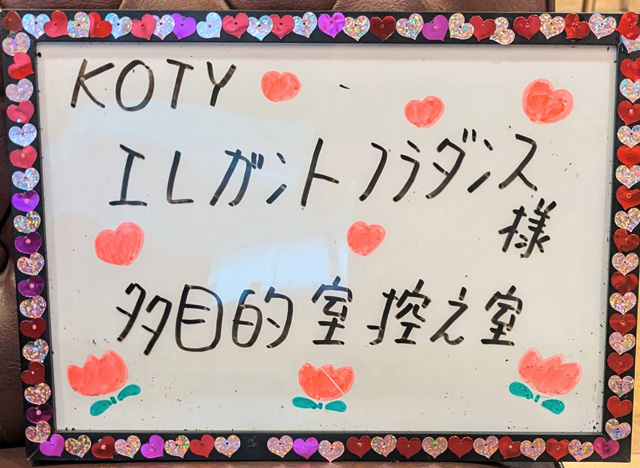 KOTY
エレガントフラダンス
様
多目的室控え室